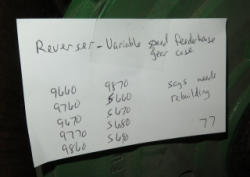 Reverser - Variable speed feederhouse
gear case
9660 9870 says needs
9760 5660 rebuilding
9670 5670
9770 5680 77
9860 5680